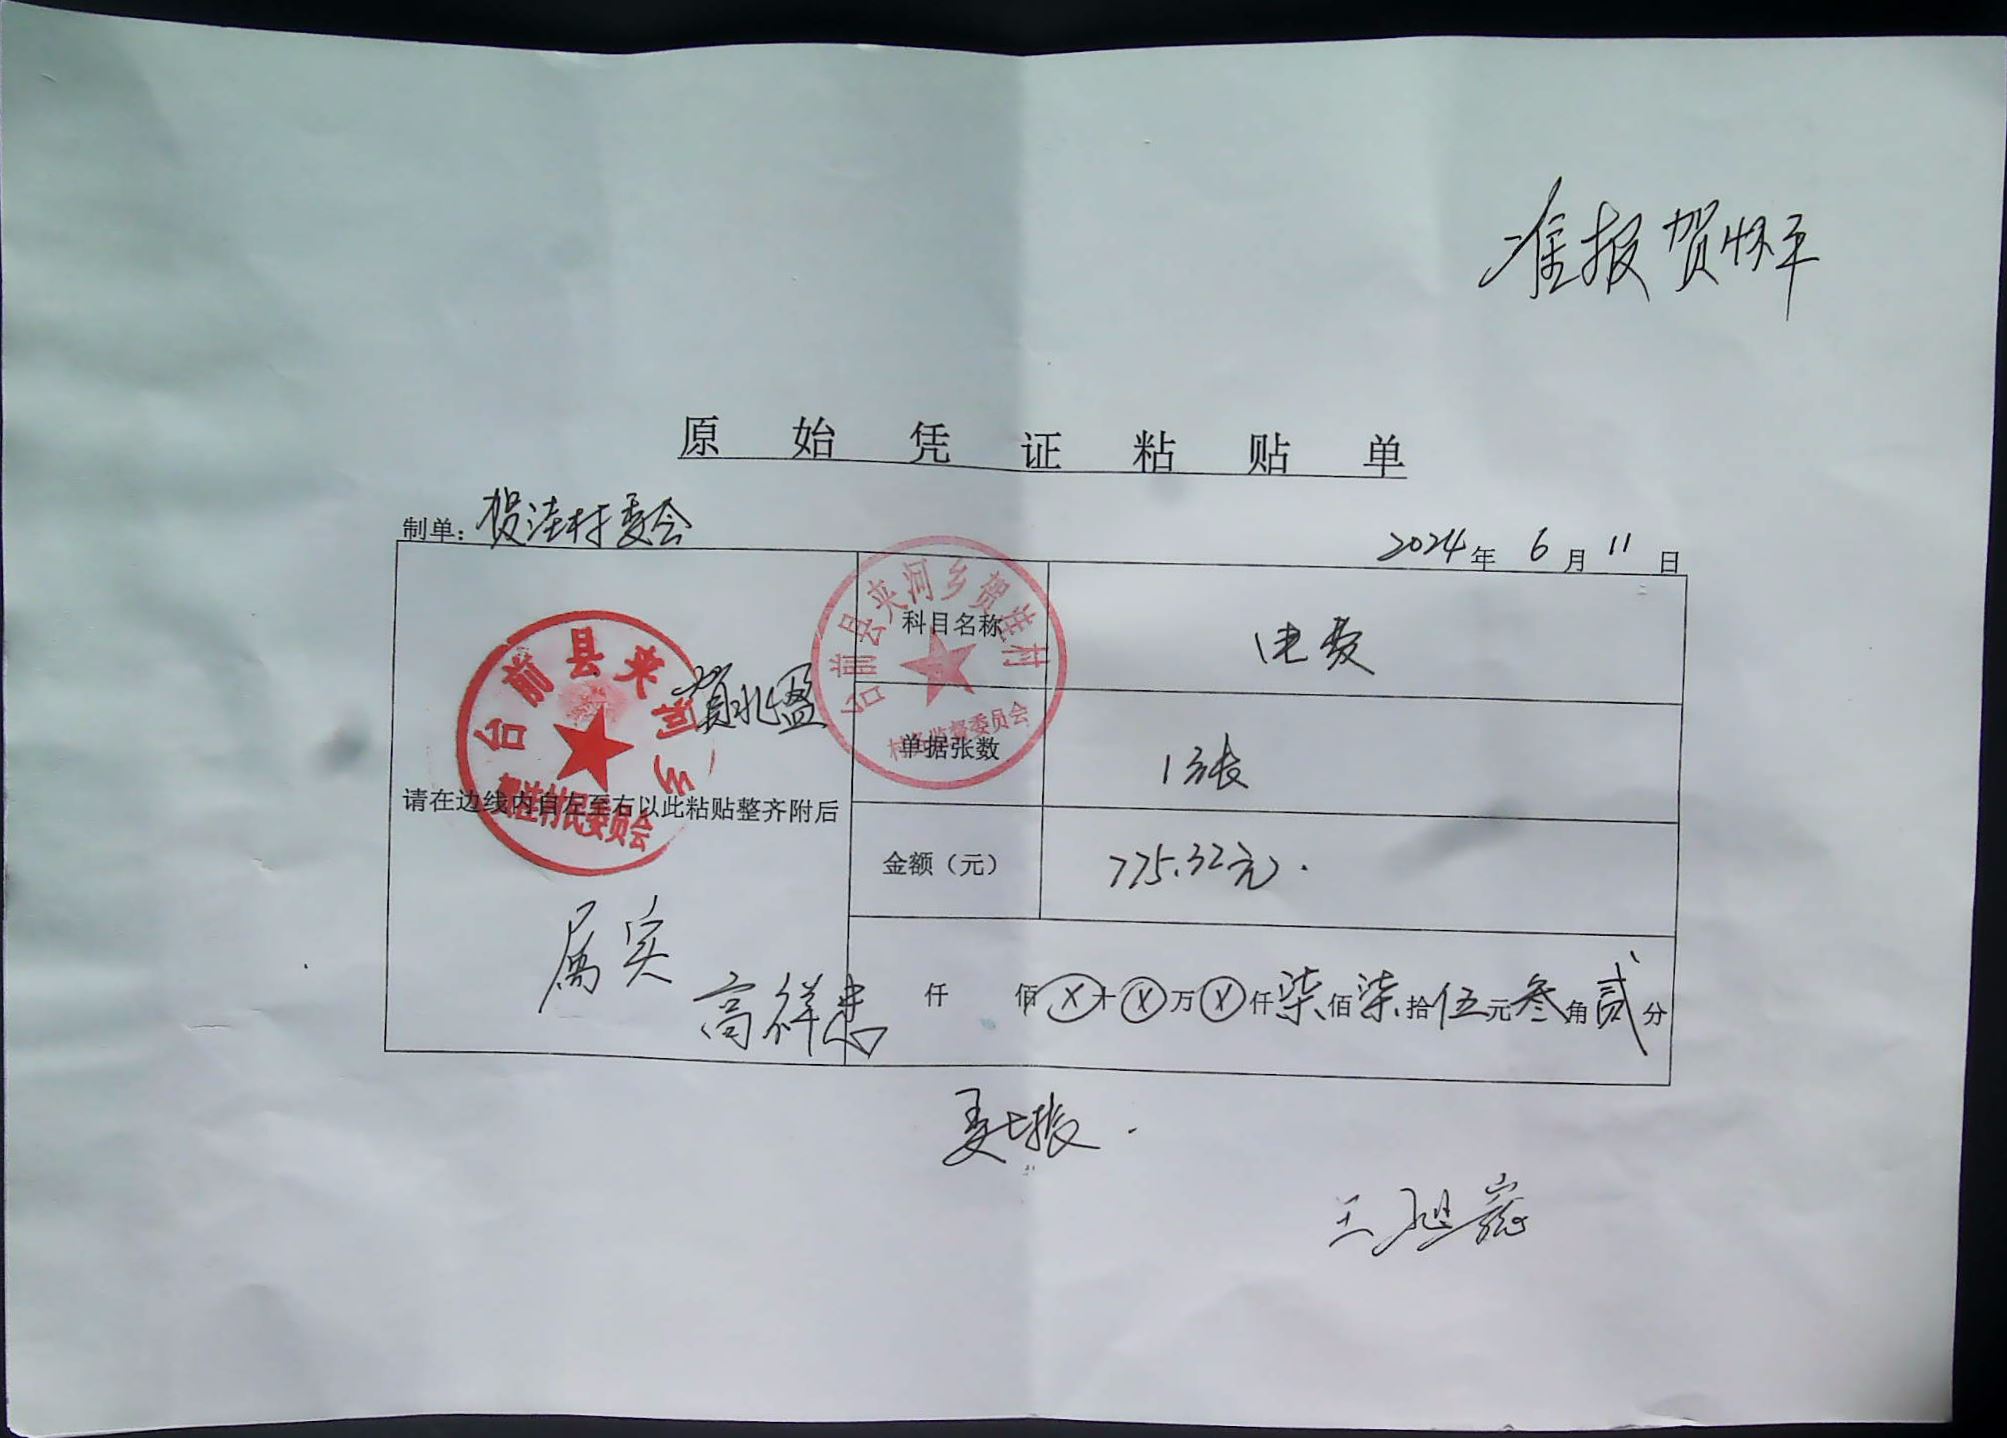 准报 贺怀平
原始凭证粘贴单
制单：贺洼村委会
2024年6月11日
台前县夹河乡
贺洼村民委员会
台前县夹河乡贺洼村
村务监督委员会
科目名称 电费
单据张数 1张
请在边线内自左至右以此粘贴整齐附后
金额（元） 775.32元.
属实
高祥忠
仟 佰ⓧ十ⓧ万ⓧ仟柒佰柒拾伍元叁角贰分